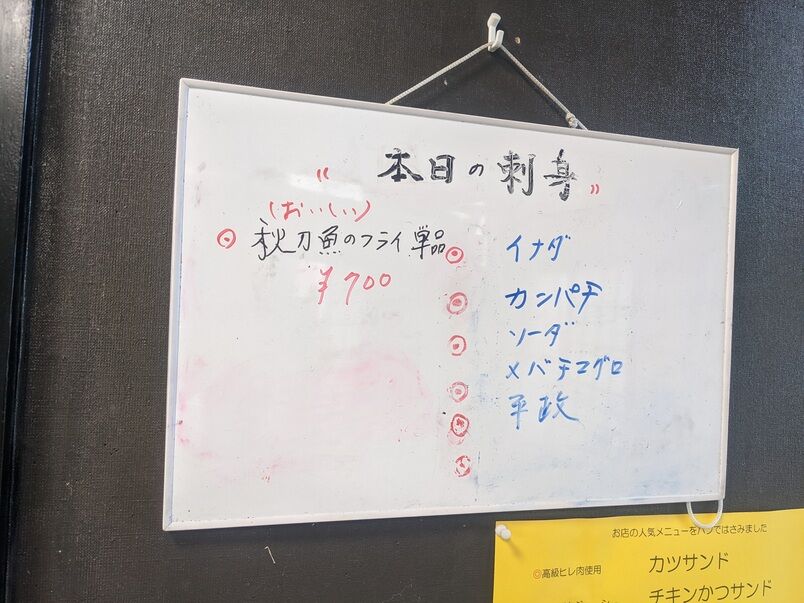 〃 本日の刺身 〃
(おいしい)
◎ 秋刀魚のフライ 単品
¥700
◎ イナダ
◎ カンパチ
◎ ソーダ
◎ メバチマグロ
◎ 平政
◎
◎
お店の人気メニューをパンではさみました
◎高級ヒレ肉使用 カツサンド
チキンかつサンド